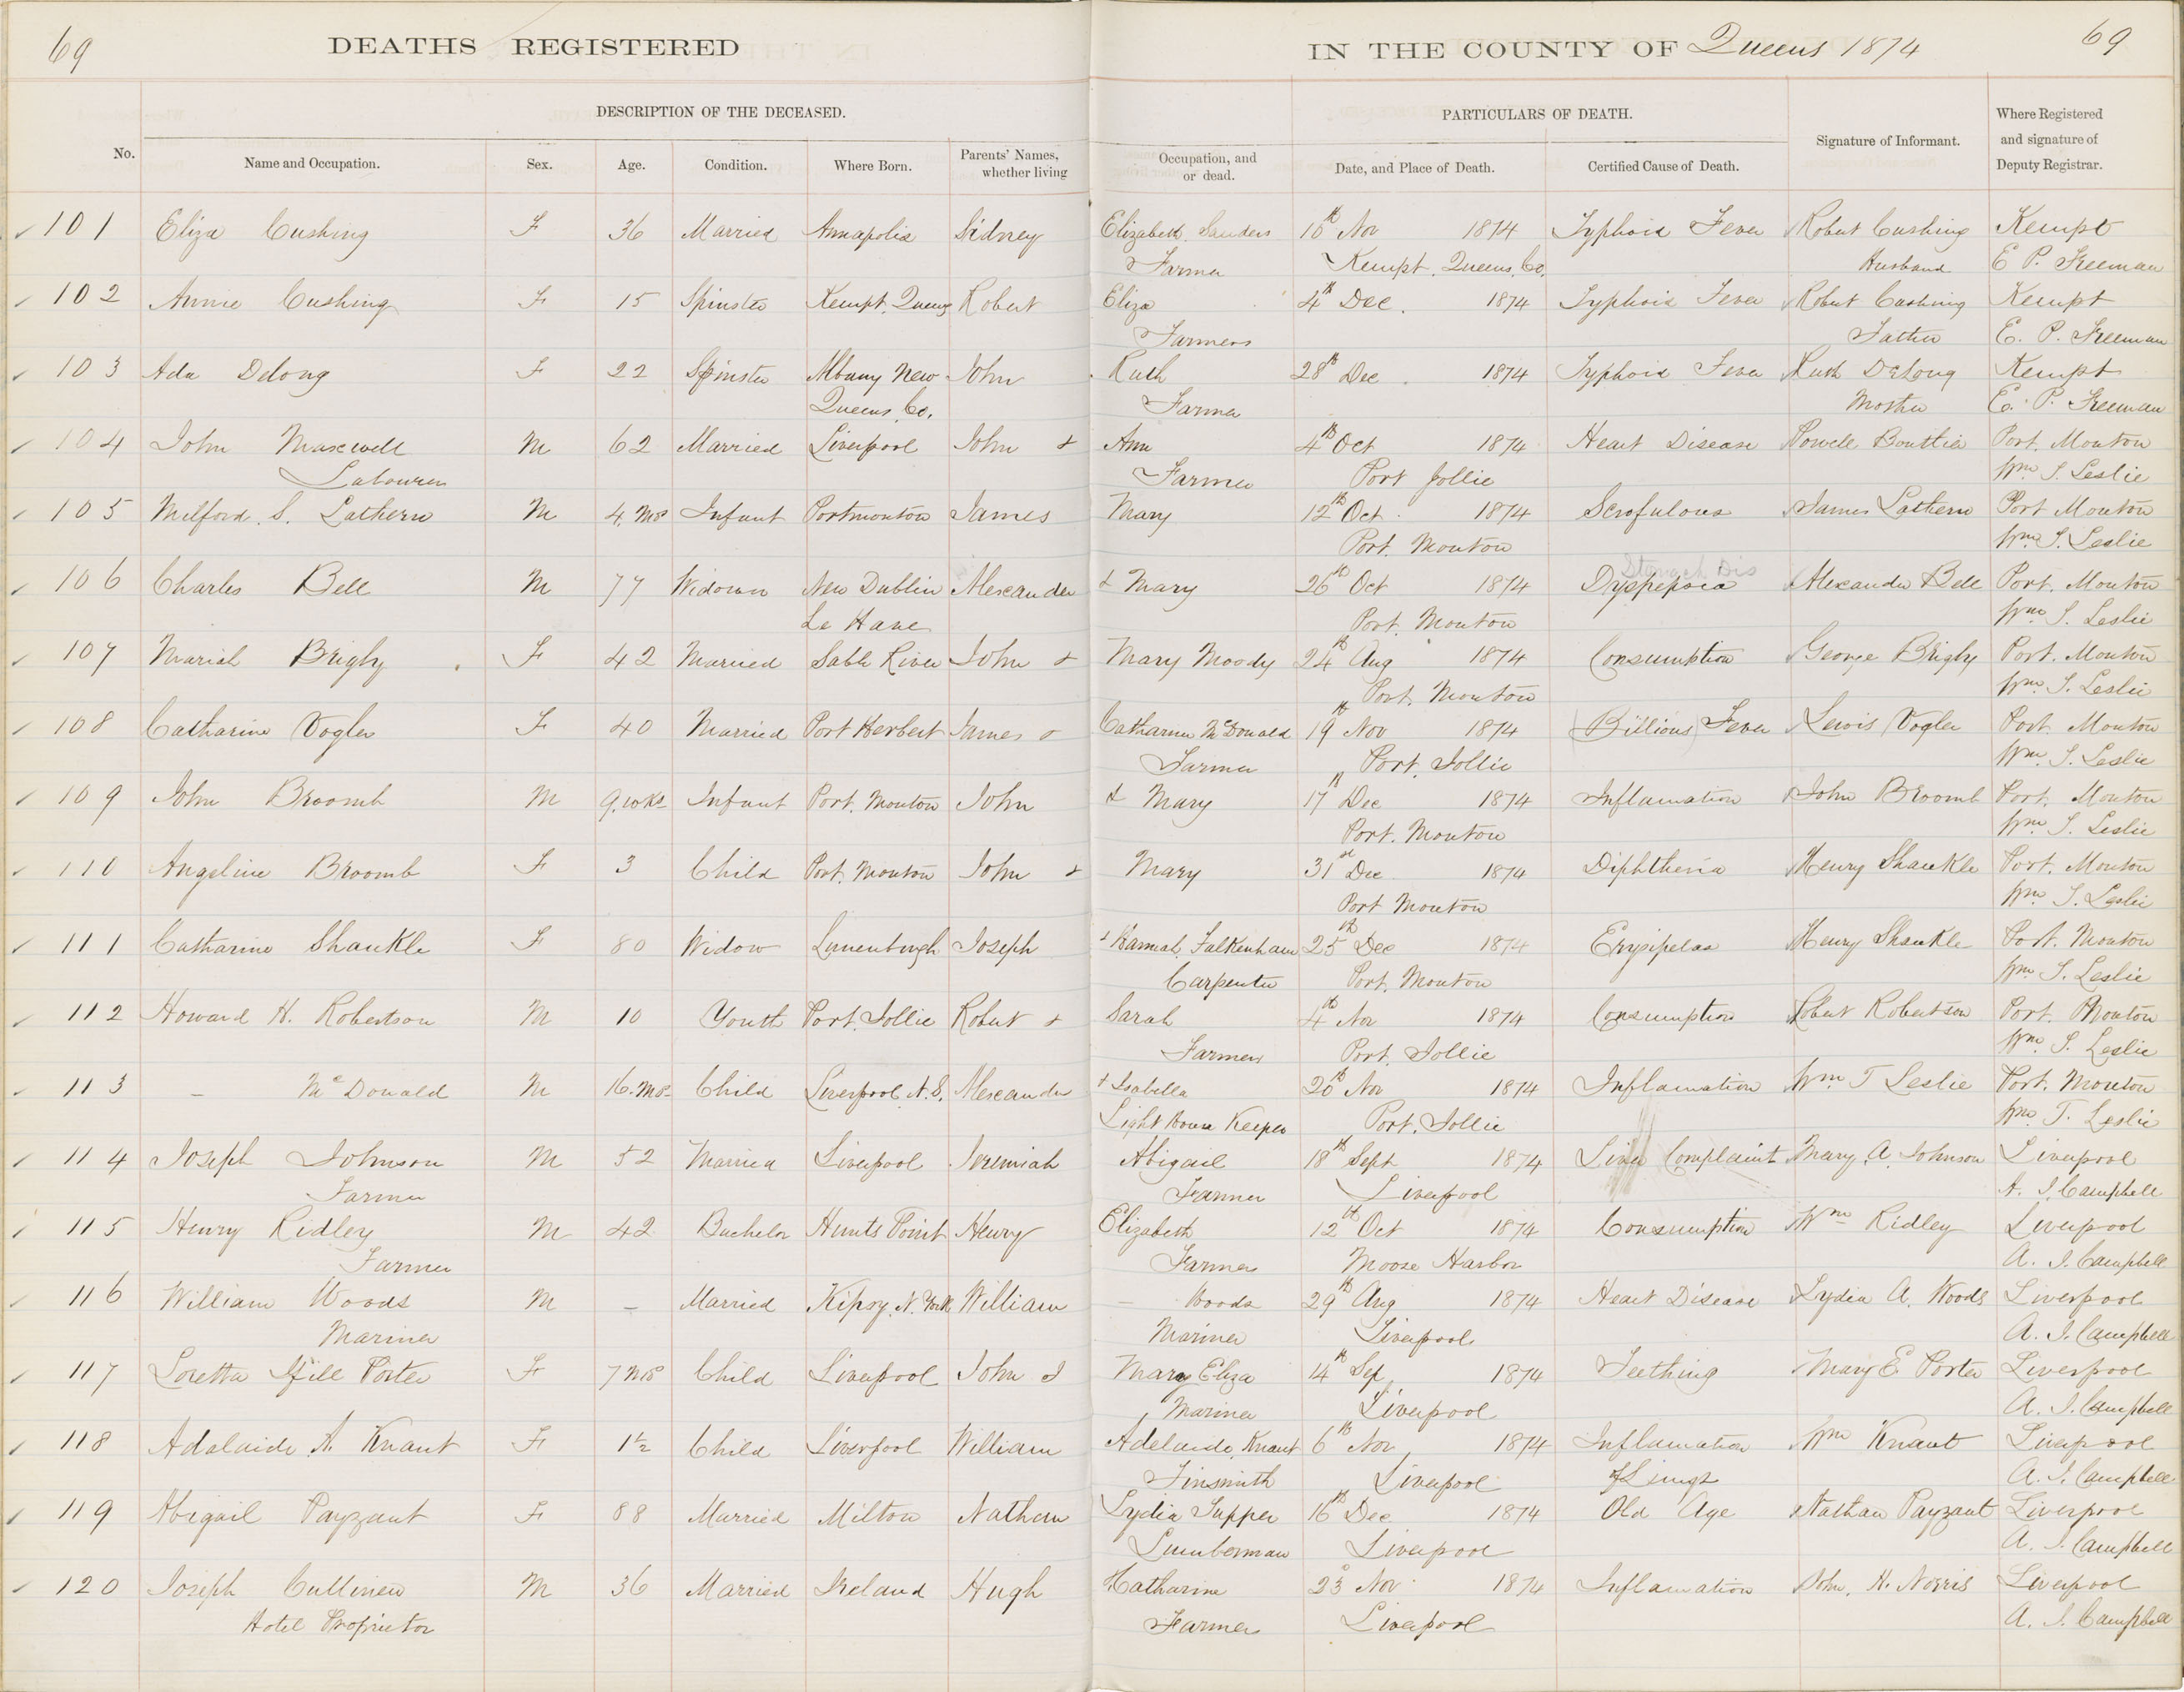 69 DEATHS REGISTERED IN THE COUNTY OF Queens 1874 69
DESCRIPTION OF THE DECEASED. PARTICULARS OF DEATH.
No. Name and Occupation. Sex. Age. Condition. Where Born. Parents' Names, whether living Occupation, and or dead. Date, and Place of Death. Certified Cause of Death. Signature of Informant. Where Registered and signature of Deputy Registrar.
101 Eliza Cushing F 36 Married Annapolis Sidney Elizabeth Sanders 10th Nov 1874 Typhoid Fever Robert Cushing Kempt
Farmer Kempt, Queens Co. Husband E P. Freeman
102 Annie Cushing F 15 Spinster Kempt, Queens Robert Eliza 4th Dec. 1874 Typhoid Fever Robert Cushing Kempt
Farmers Father E. P. Freeman
103 Ada Delong F 22 Spinster Albany New John Ruth 28th Dec. 1874 Typhoid Fever Ruth DeLong Kempt
Queens Co. Farmer Mother E. P. Freeman
104 John Maxwell M 62 Married Liverpool John & Ann 4th Oct 1874 Heart Disease Powell Port Mouton
Labourer Farmer Port Jollie Wm. T. Leslie
105 Milford. S. Lathern M 4. Mos Infant Portmouton James Mary 12th Oct 1874 Scrofulous James Lathern Port Mouton
Port. Mouton Wm. T. Leslie
Stomach Dis
106 Charles Bell M 77 Widower New Dublin Alexander & Mary 26th Oct 1874 Dyspepsia Alexander Bell Port. Mouton
Le Have Port. Mouton Wm T. Leslie
107 Mariah Brigby F 42 Married Sable River John & Mary Moody 24th Aug 1874 Consumption George Brigby Port. Mouton
Port. Mouton Wm. T. Leslie
108 Catharine Vogler F 40 Married Port Herbert James & Catharine McDonald 19th Nov 1874 Billious Fever Lewis Vogler Port Mouton
Farmer Port. Jollie Wm. T. Leslie
109 John Broomb M 9. wks Infant Port. Mouton John & Mary 17th Dec 1874 Inflamation John Broomb Port. Mouton
Port. Mouton Wm T. Leslie
110 Angeline Broomb F 3 Child Port. Mouton John & Mary 31st Dec 1874 Diphtheria Henry Shankle Port. Mouton
Port Mouton Wm T. Leslie
111 Catharine Shankle F 80 Widow Lunenburgh Joseph & Hannah Falkenham 25th Dec 1874 Erysipelas Henry Shankle Port. Mouton
Carpenter Port. Mouton Wm T. Leslie
112 Howard H. Robertson M 10 Youth Port. Jollie Robert & Sarah 4th Nov 1874 Consumption Robert Robertson Port. Mouton
Farmer Port. Jollie Wm. T. Leslie
113 – McDonald M 16. Mos Child Liverpool N. S. Alexander & Isabella 20th Nov 1874 Inflamation Wm T Leslie Port. Mouton
Light House Keeper Port. Jollie Wm T. Leslie
114 Joseph Johnson M 52 Married Liverpool Jeremiah Abigail 18th Sept 1874 Liver Complaint Mary. A. Johnson Liverpool
Farmer Farmer Liverpool A. J. Campbell
115 Henry Ridley M 42 Bachelor Hunts Point Henry Elizabeth 12th Oct 1874 Consumption Wm Ridley Liverpool
Farmer Farmer Moose Harbor A. J. Campbell
116 William Woods M – Married N. York William – Woods 29th Aug 1874 Heart Disease Lydia A. Woods Liverpool
Mariner Mariner Liverpool A. J. Campbell
117 Loretta Porter F 7 Mos Child Liverpool John J Mary Eliza 14th Sep 1874 Teething Mary E Porter Liverpool
Mariner Liverpool A. J. Campbell
118 Adalaide A. Knaut F 1½ Child Liverpool William Adelaide Knaut 6th Nov 1874 Inflamation Wm Knaut Liverpool
Tinsmith Liverpool of Lungs A. J. Campbell
119 Abigail Payzant F 88 Married Milton Nathan Lydia Tupper 16th Dec 1874 Old Age Nathan Payzant Liverpool
Lumberman Liverpool A. J. Campbell
120 Joseph Cullinen M 36 Married Ireland Hugh Catharine 23 Nov 1874 Inflamation John. H. Norris Liverpool
Hotel Proprietor Farmer Liverpool A. J. Campbell